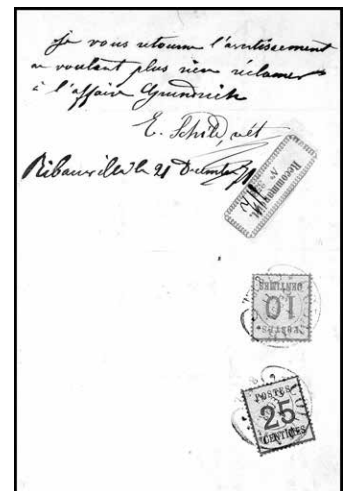 Je vous retourne l'avertissement
ne voulant plus rien réclamer
à l'affaire
E. Schild, vét
Ribauvillé le 21 Décembre 71
Recommandirt.
No
POSTES
10
CENTIMES
POSTES
25
CENTIMES